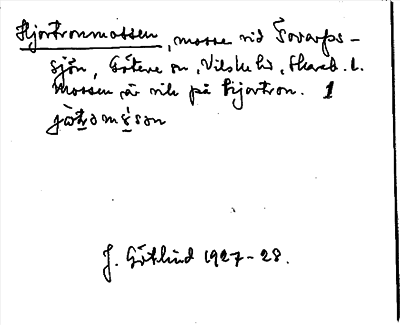 Hjortronmossen, mosse vid Tovarps-
sjön, Götene sn, Vilske hd, Skarab. l.
Mossen är rik på hjortron. 1
J. Götlind 1927-28.